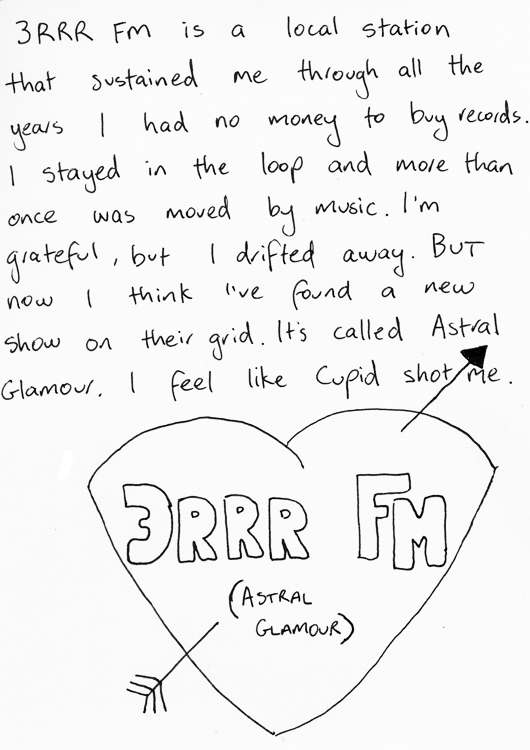 3RRR FM is a local station
that sustained me through all the
years I had no money to buy records.
I stayed in the loop and more than
once was moved by music. I'm
grateful, but I drifted away. BUT
now I think I've found a new
show on their grid. It's called Astral
Glamour. I feel like Cupid shot me.
3RRR FM
(ASTRAL
GLAMOUR)